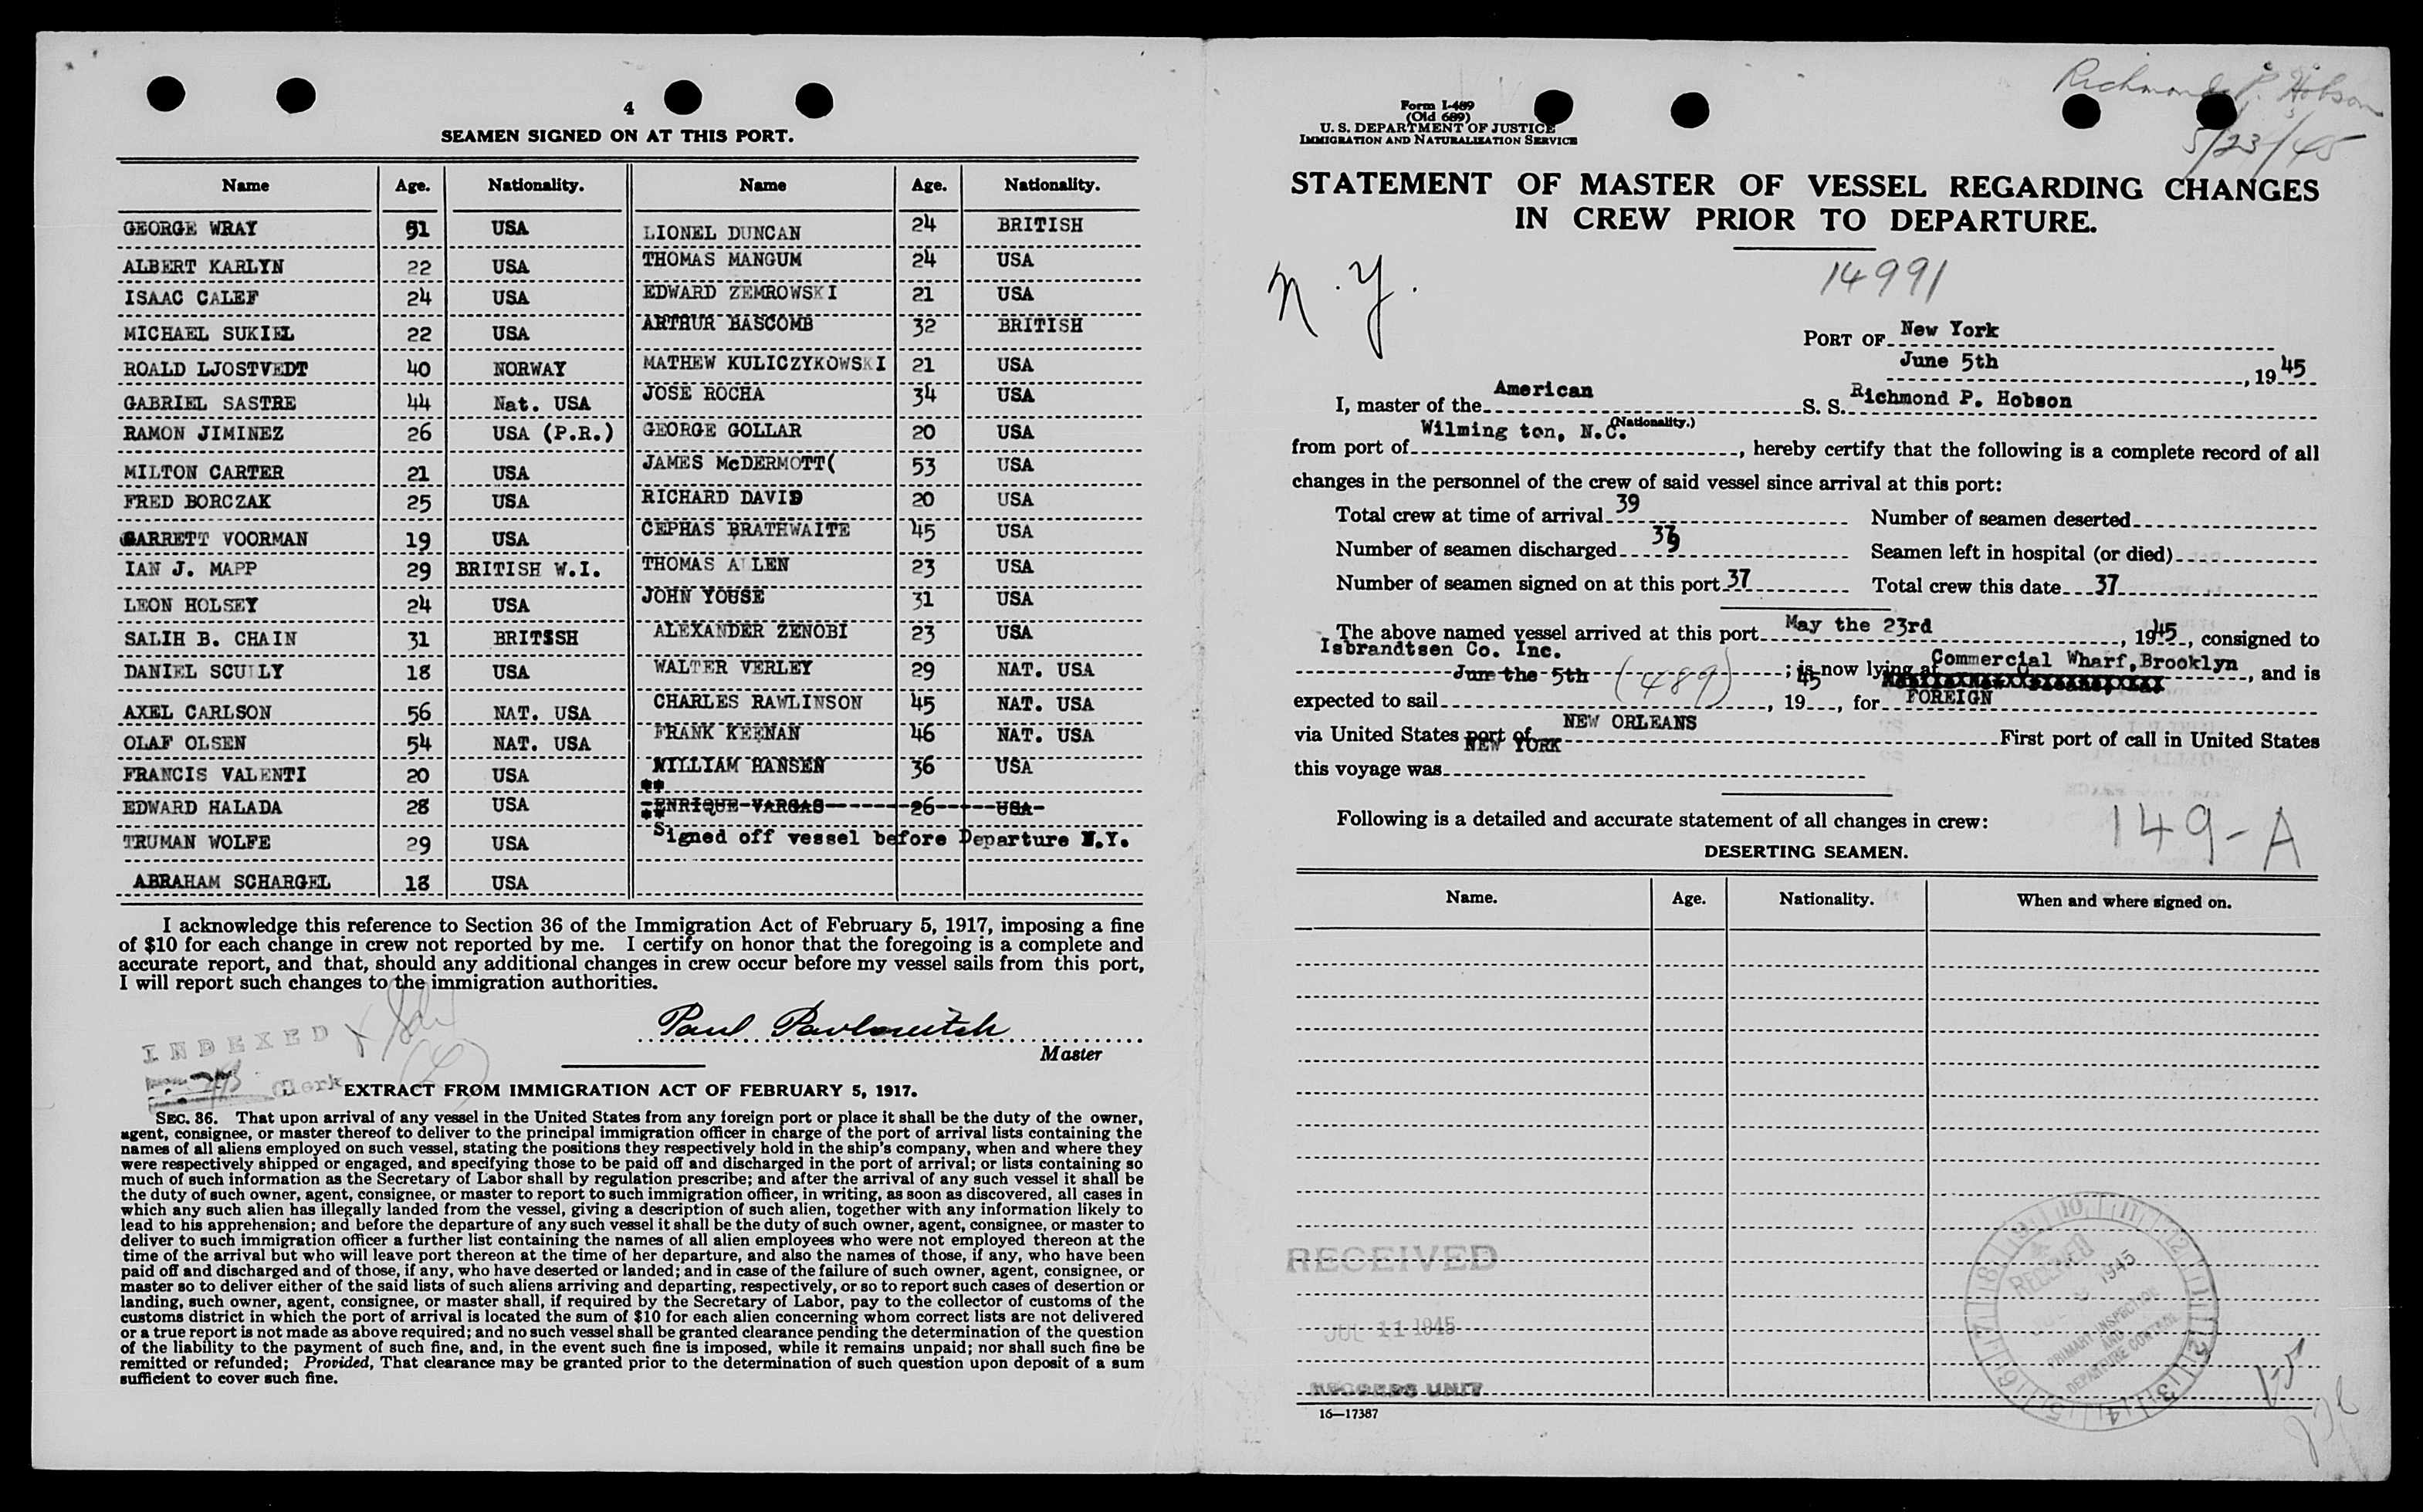 4
SEAMEN SIGNED ON AT THIS PORT.
Name Age. Nationality. Name Age. Nationality.
GEORGE WRAY 51 USA LIONEL DUNCAN 24 BRITISH
ALBERT KARLYN 22 USA THOMAS MANGUM 24 USA
ISAAC CALEF 24 USA EDWARD ZEMROWSKI 21 USA
MICHAEL SUKIEL 22 USA ARTHUR BASCOMB 32 BRITISH
ROALD LJOSTVEDT 40 NORWAY MATHEW KULICZYKOWSKI 21 USA
GABRIEL SASTRE 44 Nat. USA JOSE ROCHA 34 USA
RAMON JIMINEZ 26 USA (P.R.) GEORGE GOLLAR 20 USA
MILTON CARTER 21 USA JAMES McDERMOTT( 53 USA
FRED BORCZAK 25 USA RICHARD DAVID 20 USA
GARRETT VOORMAN 19 USA CEPHAS BRATHWAITE 45 USA
IAN J. MAPP 29 BRITISH W.I. THOMAS ALLEN 23 USA
LEON HOLSEY 24 USA JOHN YOUSE 31 USA
SALIH B. CHAIN 31 BRITISH ALEXANDER ZENOBI 23 USA
DANIEL SCULLY 18 USA WALTER VERLEY 29 NAT. USA
AXEL CARLSON 56 NAT. USA CHARLES RAWLINSON 45 NAT. USA
OLAF OLSEN 54 NAT. USA FRANK KEENAN 46 NAT. USA
FRANCIS VALENTI 20 USA WILLIAM HANSEN 36 USA
EDWARD HALADA 28 USA ** ENRIQUE VARGAS 26 USA
TRUMAN WOLFE 29 USA ** Signed off vessel before Departure N.Y.
ABRAHAM SCHARGEL 18 USA
I acknowledge this reference to Section 36 of the Immigration Act of February 5, 1917, imposing a fine
of $10 for each change in crew not reported by me. I certify on honor that the foregoing is a complete and
accurate report, and that, should any additional changes in crew occur before my vessel sails from this port,
I will report such changes to the immigration authorities.
Paul Pavlowitch
Master
INDEXED
Clerk
EXTRACT FROM IMMIGRATION ACT OF FEBRUARY 5, 1917.
SEC. 36. That upon arrival of any vessel in the United States from any foreign port or place it shall be the duty of the owner,
agent, consignee, or master thereof to deliver to the principal immigration officer in charge of the port of arrival lists containing the
names of all aliens employed on such vessel, stating the positions they respectively hold in the ship's company, when and where they
were respectively shipped or engaged, and specifying those to be paid off and discharged in the port of arrival; or lists containing so
much of such information as the Secretary of Labor shall by regulation prescribe; and after the arrival of any such vessel it shall be
the duty of such owner, agent, consignee, or master to report to such immigration officer, in writing, as soon as discovered, all cases in
which any such alien has illegally landed from the vessel, giving a description of such alien, together with any information likely to
lead to his apprehension; and before the departure of any such vessel it shall be the duty of such owner, agent, consignee, or master to
deliver to such immigration officer a further list containing the names of all alien employees who were not employed thereon at the
time of the arrival but who will leave port thereon at the time of her departure, and also the names of those, if any, who have been
paid off and discharged and of those, if any, who have deserted or landed; and in case of the failure of such owner, agent, consignee, or
master so to deliver either of the said lists of such aliens arriving and departing, respectively, or so to report such cases of desertion or
landing, such owner, agent, consignee, or master shall, if required by the Secretary of Labor, pay to the collector of customs of the
customs district in which the port of arrival is located the sum of $10 for each alien concerning whom correct lists are not delivered
or a true report is not made as above required; and no such vessel shall be granted clearance pending the determination of the question
of the liability to the payment of such fine, and, in the event such fine is imposed, while it remains unpaid; nor shall such fine be
remitted or refunded; Provided, That clearance may be granted prior to the determination of such question upon deposit of a sum
sufficient to cover such fine.
Richmond P. Hobson
5/23/45
Form I-489
(Old 689)
U. S. DEPARTMENT OF JUSTICE
IMMIGRATION AND NATURALIZATION SERVICE
STATEMENT OF MASTER OF VESSEL REGARDING CHANGES
IN CREW PRIOR TO DEPARTURE.
N.Y.
14991
PORT OF New York
June 5th, 1945
I, master of the American S. S. Richmond P. Hobson
(Nationality.)
from port of Wilming ton, N.C., hereby certify that the following is a complete record of all
changes in the personnel of the crew of said vessel since arrival at this port:
Total crew at time of arrival 39 Number of seamen deserted
Number of seamen discharged 39 Seamen left in hospital (or died)
Number of seamen signed on at this port 37 Total crew this date 37
The above named vessel arrived at this port May the 23rd, 1945, consigned to
Isbrandtsen Co. Inc.; is now lying at Commercial Wharf, Brooklyn, and is
expected to sail June the 5th (489), 1945, for FOREIGN
via United States port of NEW ORLEANS First port of call in United States
this voyage was NEW YORK
Following is a detailed and accurate statement of all changes in crew:
149-A
DESERTING SEAMEN.
Name. Age. Nationality. When and where signed on.
RECEIVED
JUL 11 1945
RECORDS UNIT
RECEIVED
1945
PRIMARY INSPECTION
AND
DEPARTURE CONTROL
16—17387